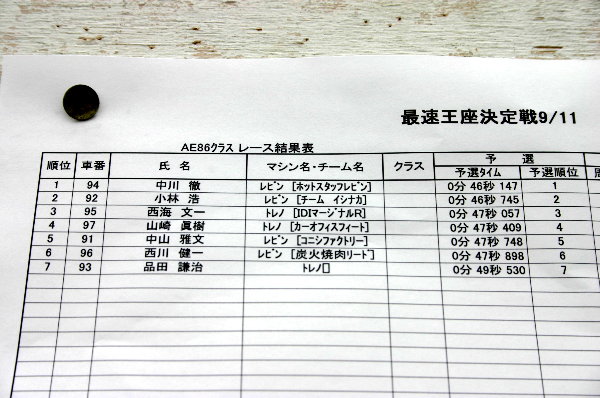 最速王座決定戦9/11
AE86クラス レース結果表
順位 車番 氏 名 マシン名・チーム名 クラス 予 選
予選タイム 予選順位
1 94 中川 徹 レビン [ホットスタッフレビン] 0分 46秒 147 1
2 92 小林 浩 レビン [チーム イシナカ] 0分 46秒 745 2
3 95 西海 文一 トレノ [IDIマージナルR] 0分 47秒 057 3
4 97 山崎 眞樹 トレノ [カーオフィスフィート] 0分 47秒 409 4
5 91 中山 雅文 レビン [コニシファクトリー] 0分 47秒 748 5
6 96 西川 健一 レビン [炭火焼肉リード] 0分 47秒 898 6
7 93 品田 謙治 トレノ[] 0分 49秒 530 7